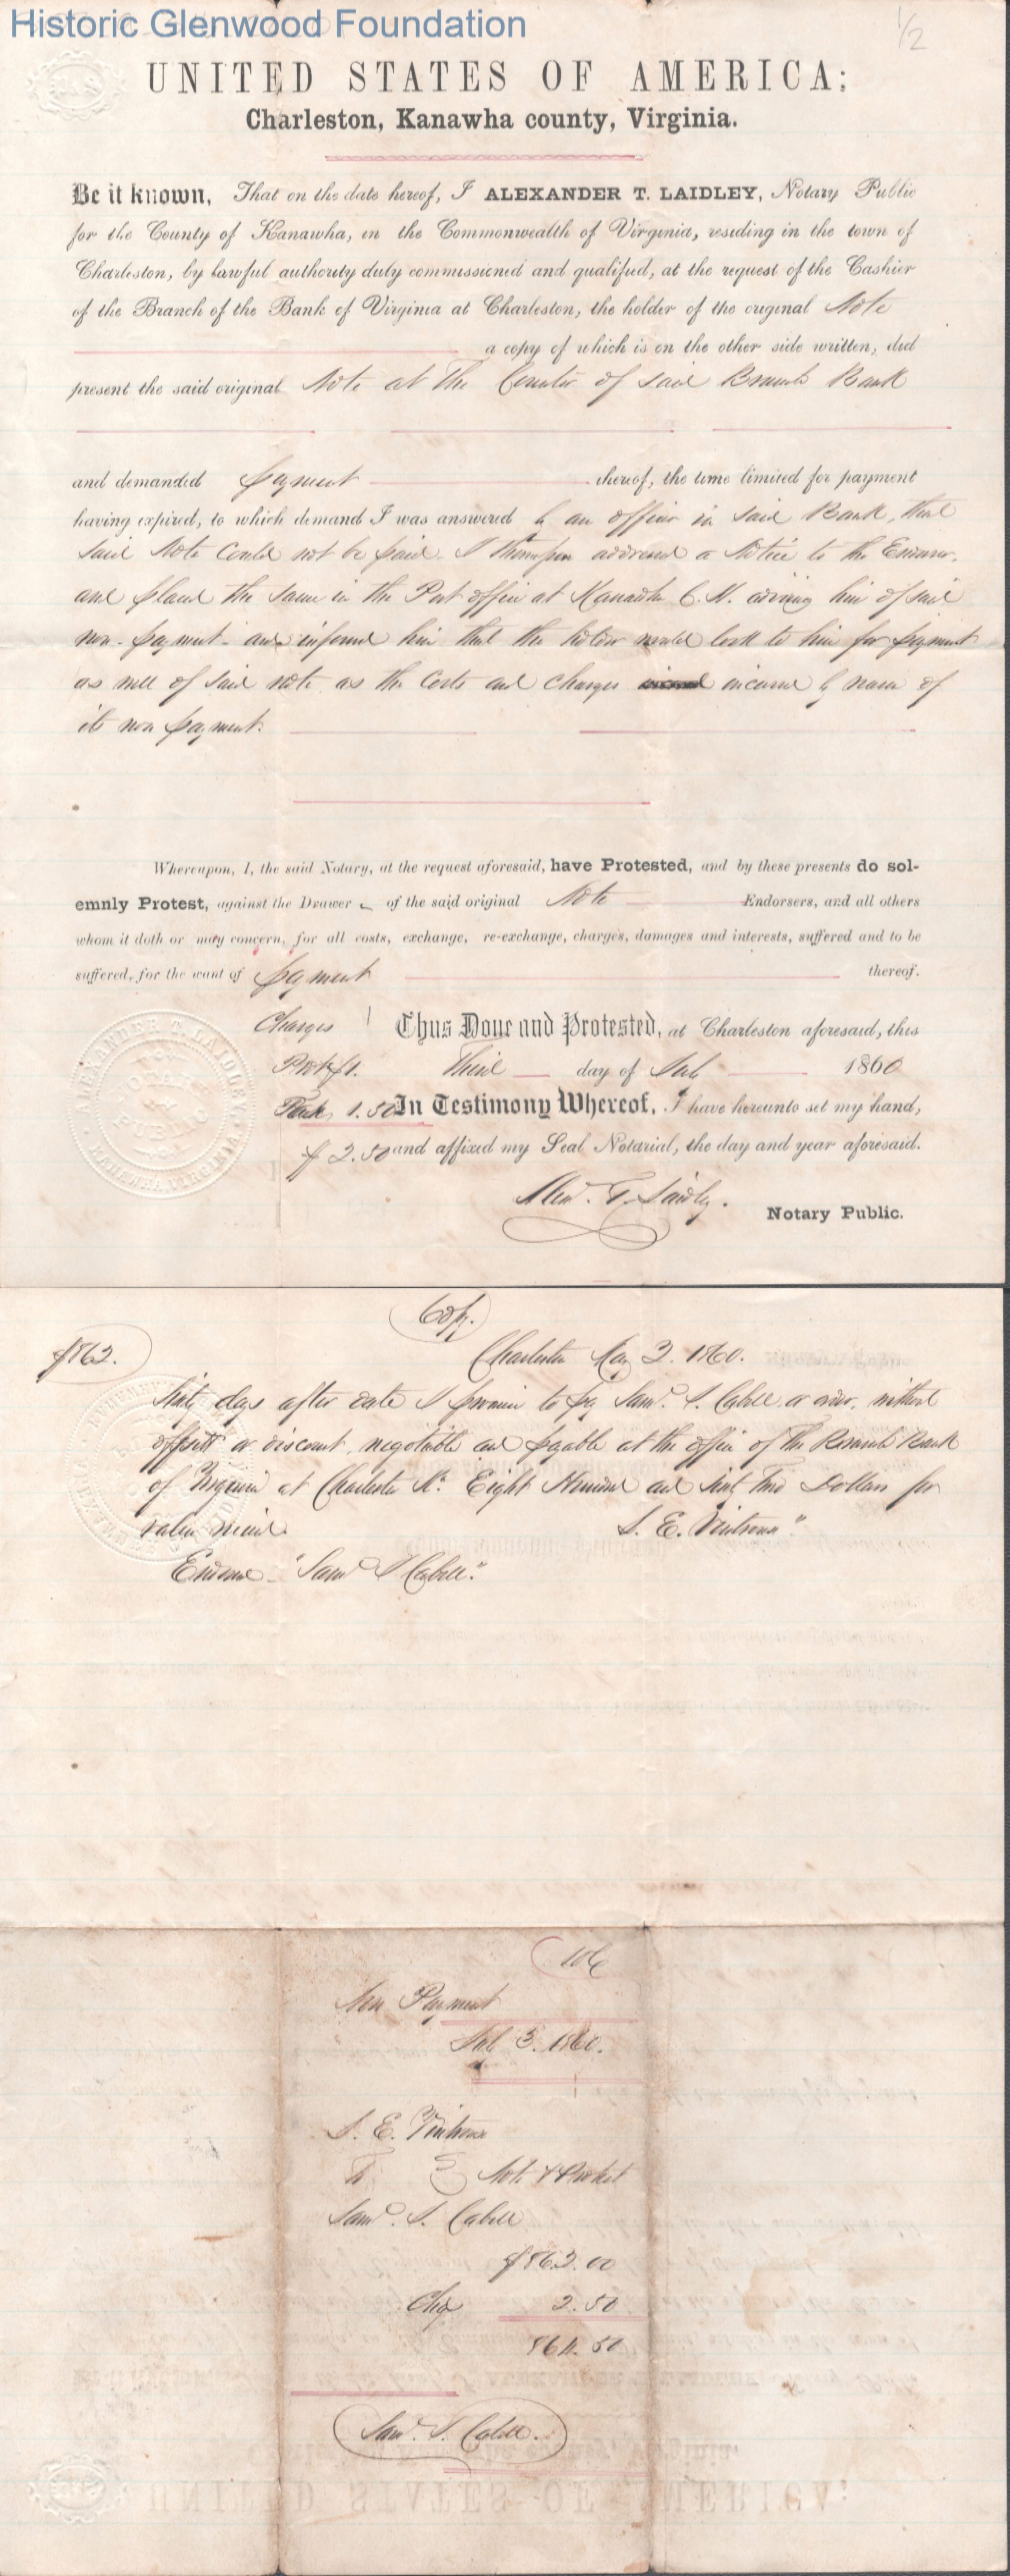 Historic Glenwood Foundation
1/2
UNITED STATES OF AMERICA;
Charleston, Kanawha county, Virginia.
Be it known, That on the date hereof, I ALEXANDER T. LAIDLEY, Notary Public
for the County of Kanawha, in the Commonwealth of Virginia, residing in the town of
Charleston, by lawful authority duly commissioned and qualified, at the request of the Cashier
of the Branch of the Bank of Virginia at Charleston, the holder of the original Note
a copy of which is on the other side written, did
present the said original Note at the Counter of said Branch Bank
and demanded payment thereof, the time limited for payment
having expired, to which demand I was answered by an officer in said Bank, that
said Note could not be paid. I thereupon addressed a Notice to the Endorser,
and placed the same in the Post office at Kanawha C. H. advising him of said
non-payment - and informed him that the holder would look to him for payment
as well of said note as the costs and charges incurred by reason of
its non payment.
Whereupon, I, the said Notary, at the request aforesaid, have Protested, and by these presents do sol-
emnly Protest, against the Drawer of the said original Note Endorsers, and all others
whom it doth or may concern, for all costs, exchange, re-exchange, charges, damages and interests, suffered and to be
suffered, for the want of payment thereof.
Charges Thus Done and Protested, at Charleston aforesaid, this
Third day of July 1860
1.50 In Testimony Whereof, I have hereunto set my hand,
$2.50 and affixed my Seal Notarial, the day and year aforesaid.
Alexr. T. Laidley. Notary Public.
ALEXANDER T. LAIDLEY
NOTARY PUBLIC
KANAWHA, VIRGINIA
Copy.
$862. Charleston May 2. 1860.
Sixty days after date I promise to pay Saml. I. Cabell or order, without
offsett or discount, negotiable and payable at the office of the Branch Bank
of Virginia at Charleston Va. Eight Hundred and Sixty Two Dollars for
value recd. S. E. Vintroux"
Endorsed - "Saml I Cabell."
106
Non Payment
July 3. 1860.
S. E. Vintroux
To Note & Protest
Saml. I. Cabell
$862.00
Chg 2.50
864.50
Saml. I. Cabell.